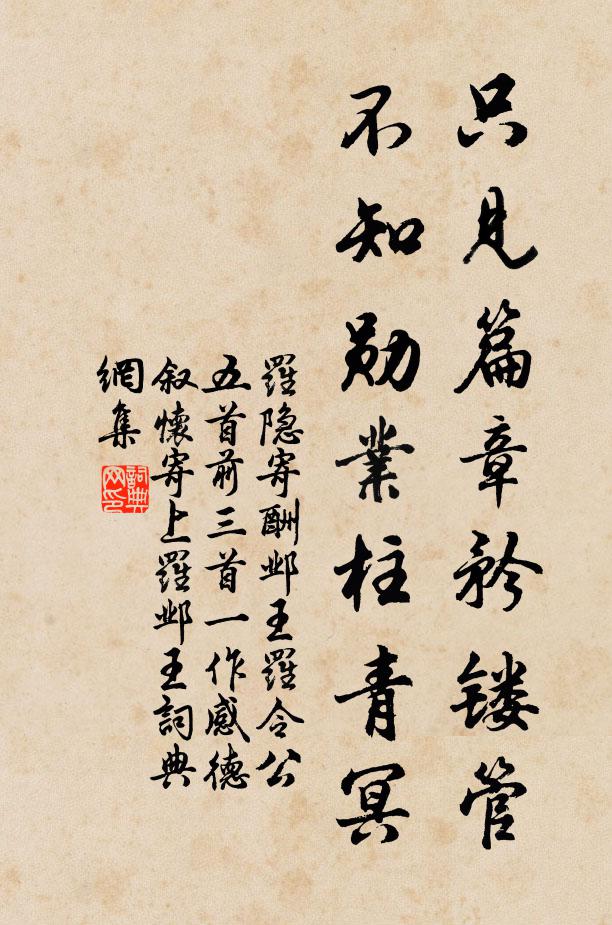 只見篇章矜镂管
不知勋業柱青冥
羅隐寄酬邺王羅令公
五首前三首一作感德
叙懷寄上羅邺王詞典
網集
詞典
网印